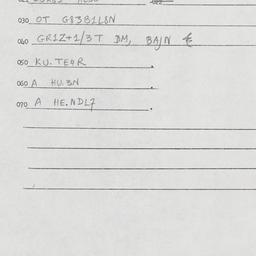 030 OT G83B1L8N
040 GR1Z+1/3T DM, BA/N €
050 KU.TE4R
060 A HU.3N
070 A HE.NDL7